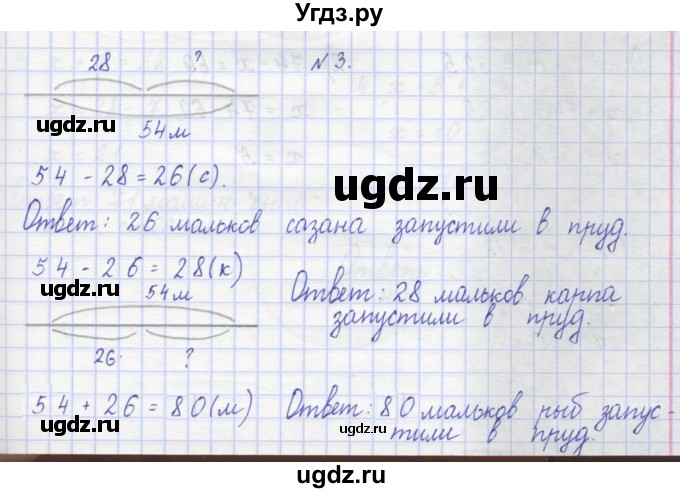 Угдз.ру
28 ? № 3.
ugdz.ru
ugdz.ru
54 м
54 - 28 = 26 (с).
Ответ: 26 мальков сазана запустили в пруд.
54 - 26 = 28 (к)
ugdz.ru
ugdz.ru
54 м
Ответ: 28 мальков карпа
запустили в пруд.
26 ?
54 + 26 = 80 (м)
Ответ: 80 мальков рыб запус-
тили в пруд.
ugdz.ru
ugdz.ru
ugdz.ru